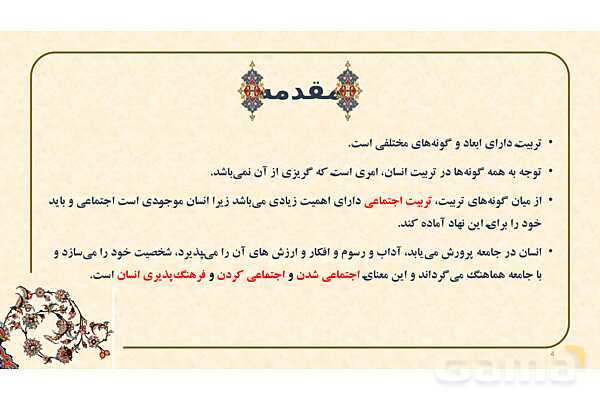 مقدمه
• تربیت دارای ابعاد و گونه‌های مختلفی است.
• توجه به همه گونه‌ها در تربیت انسان، امری است که گریزی از آن نمی‌باشد.
• از میان گونه‌های تربیت، تربیت اجتماعی دارای اهمیت زیادی می‌باشد زیرا انسان موجودی است اجتماعی و باید
خود را برای این نهاد آماده کند.
• انسان در جامعه پرورش می‌یابد، آداب و رسوم و افکار و ارزش های آن را می‌پذیرد، شخصیت خود را می‌سازد و
با جامعه هماهنگ می‌گرداند و این معنای اجتماعی شدن و اجتماعی کردن و فرهنگ‌پذیری انسان است.
4
Gama